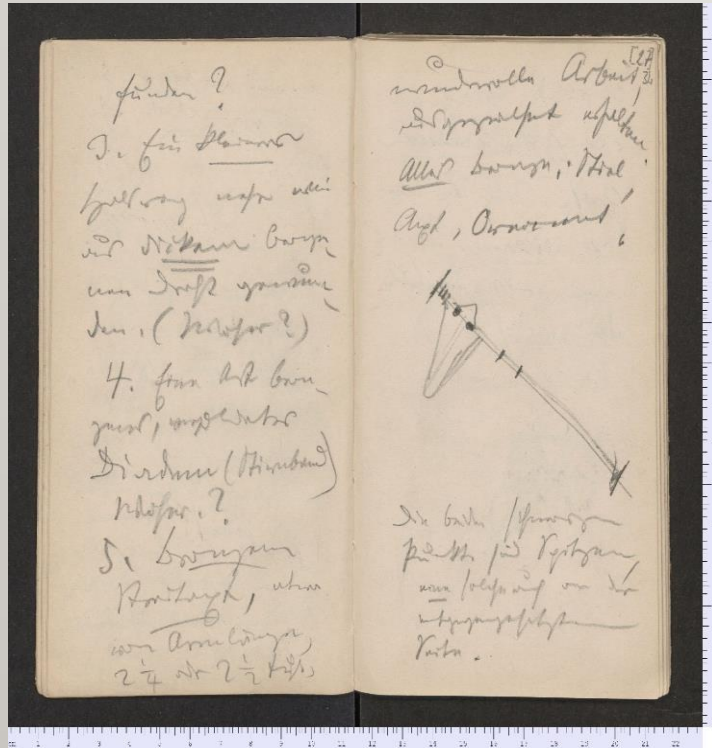 funden?
3. Ein kleinerer
Halsring mehr wie
aus dickem bronze-
nen Draht gewun-
den. (Woher?)
4. Eine Art bron-
zenes, vergoldetes
Diadem (Stirnband)
Woher.?
5. bronzene
Streitaxt, etwa
von Armlänge,
2 1/4 oder 2 1/2 Fuß,
[27
wundervolle Arbeit,
ausgezeichnet erhalten.
Alles bronze, Stiel,
Axt, Ornament,
Die beiden schwarzen
Punkte sind Spitzen,
eine solche auch an der
entgegengesetzten
Seite.